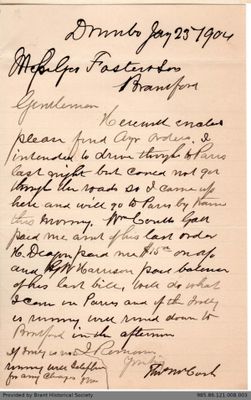 Drumbo Jany 23rd 1904
Foster & Co
Brantford
Gentlemen
Herewith enclosed
please find Ayr orders. I
intended to drive through to Paris
last night but could not get
through the roads so I came up
here and will go to Paris by train
this morning. Wm Coutts Galt
paid me amt of his last order
paid me $15.00 on a/c
and Harrison paid balance
of his last bill, will do what
I can in Paris and if the Trolly
is running will run down to
Brantford in the afternoon
If Trolly is not I Remain
running will telephone Yours truly
for any changes
Provided by: Brant Historical Society
965.88.121.008.803